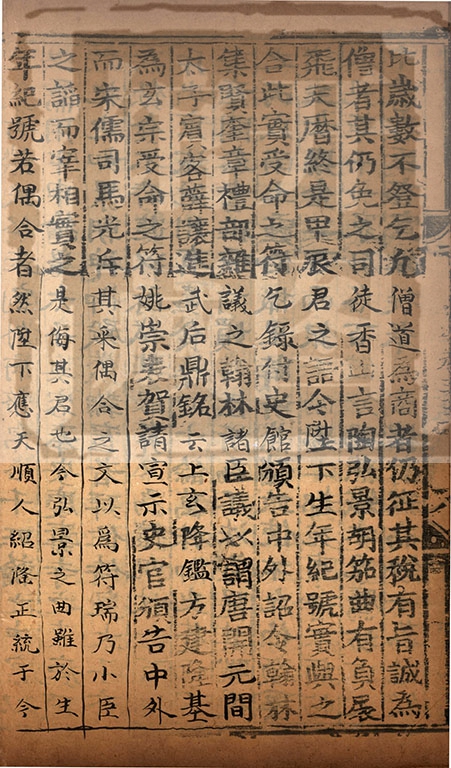 比歲數不登乞允僧道為商者仍征其稅有旨誠為
僧者其仍免之司徒香山言陶弘景胡笳曲有負扆
飛天曆終是甲辰君之語今陛下生年紀號實與之
合此實受命之符乞錄付史館頒告中外詔令翰林
集賢奎章禮部雜議之翰林諸臣議以謂唐開元間
太子賓客薛讓進武后鼎銘云上玄降鑑方建隆基
為玄宗受命之符姚崇表賀請宣示史官頒告中外
而宋儒司馬光斥其采偶合之文以爲符瑞乃小臣
之謟而宰相實之是侮其君也今弘景之曲雖於生
年紀號若偶合者然陛下應天順人紹隆正統于今